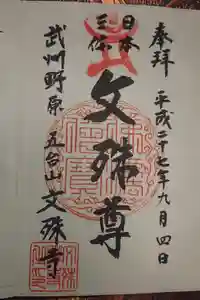 奉拝
平成二十七年九月四日
日本
三体
文殊尊
武州野原
五台山
文殊寺